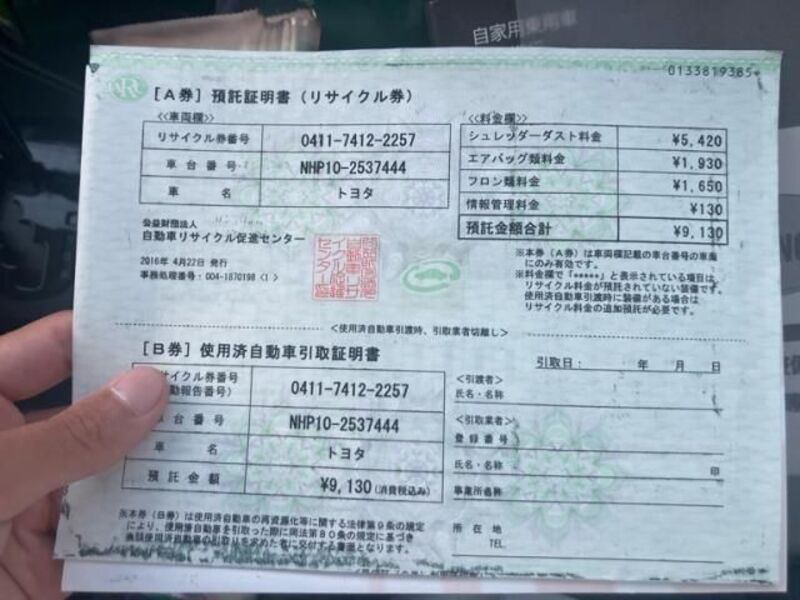 自家用乗用車
0133819385
[A券] 預託証明書 (リサイクル券)
≪車両欄≫
リサイクル券番号 0411-7412-2257
車台番号 NHP10-2537444
車名 トヨタ
≪料金欄≫
シュレッダーダスト料金 ¥5,420
エアバッグ類料金 ¥1,930
フロン類料金 ¥1,650
情報管理料金 ¥130
預託金額合計 ¥9,130
公益財団法人
自動車リサイクル促進センター
2016年 4月22日 発行
事務処理番号:004-1870198 <1>
※本券(A券)は車両欄記載の車台番号の車両
にのみ有効です。
※料金欄で「*****」と表示されている項目は
リサイクル料金が預託されていない装備です。
使用済自動車引渡時に装備がある場合は
リサイクル料金の追加預託が必要です。
<使用済自動車引渡時、引取業者切離し>
[B券] 使用済自動車引取証明書
引取日: 年 月 日
サイクル券番号
動報告番号) 0411-7412-2257
台番号 NHP10-2537444
車名 トヨタ
預託金額 ¥9,130 (消費税込み)
<引渡者>
氏名・名称
<引取業者>
登録番号
氏名・名称 印
事業所名称
所在地
TEL
※本券(B券)は使用済自動車の再資源化等に関する法律第9条の規定
により、使用済自動車を引取った際に同法第80条の規定に基づき
当該使用済自動車の引取りを求めた者に交付する書面となります。